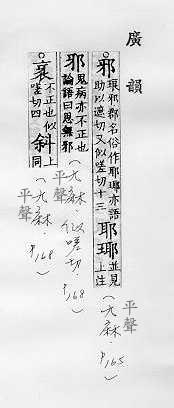 廣韻
。邪 琅邪郡名俗作耶瑘亦語助以遮切又似嗟切十三 耶瑘 並見上注 (九麻.P165)
平聲
邪 鬼病亦不正也論語曰思無邪 (九麻.似嗟切.P168)
平聲
。衺 不正也似嗟切四 斜 上同 (九麻.P168)
平聲